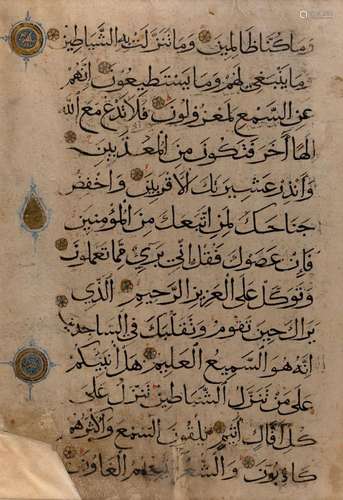 وَمَا كُنَّا ظَالِمِينَ وَمَا تَنَزَّلَتْ بِهِ الشَّيَاطِينُ
وَمَا يَنْبَغِي لَهُمْ وَمَا يَسْتَطِيعُونَ إِنَّهُمْ
عَنِ السَّمْعِ لَمَعْزُولُونَ فَلَا تَدْعُ مَعَ اللهِ
إِلَهًا آخَرَ فَتَكُونَ مِنَ الْمُعَذَّبِينَ
وَأَنْذِرْ عَشِيرَتَكَ الْأَقْرَبِينَ وَاخْفِضْ
جَنَاحَكَ لِمَنِ اتَّبَعَكَ مِنَ الْمُؤْمِنِينَ
فَإِنْ عَصَوْكَ فَقُلْ إِنِّي بَرِيءٌ مِمَّا تَعْمَلُونَ
وَتَوَكَّلْ عَلَى الْعَزِيزِ الرَّحِيمِ الَّذِي
يَرَاكَ حِينَ تَقُومُ وَتَقَلُّبَكَ فِي السَّاجِدِينَ
إِنَّهُ هُوَ السَّمِيعُ الْعَلِيمُ هَلْ أُنَبِّئُكُمْ
عَلَى مَنْ تَنَزَّلُ الشَّيَاطِينُ تَنَزَّلُ عَلَى
كُلِّ أَفَّاكٍ أَثِيمٍ يُلْقُونَ السَّمْعَ وَأَكْثَرُهُمْ
كَاذِبُونَ وَالشُّعَرَاءُ يَتَّبِعُهُمُ الْغَاوُونَ